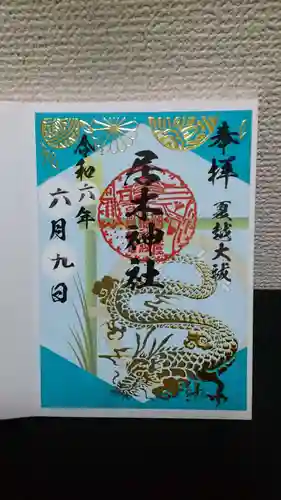 奉拝
夏越大祓
居木神社
令和六年
六月九日